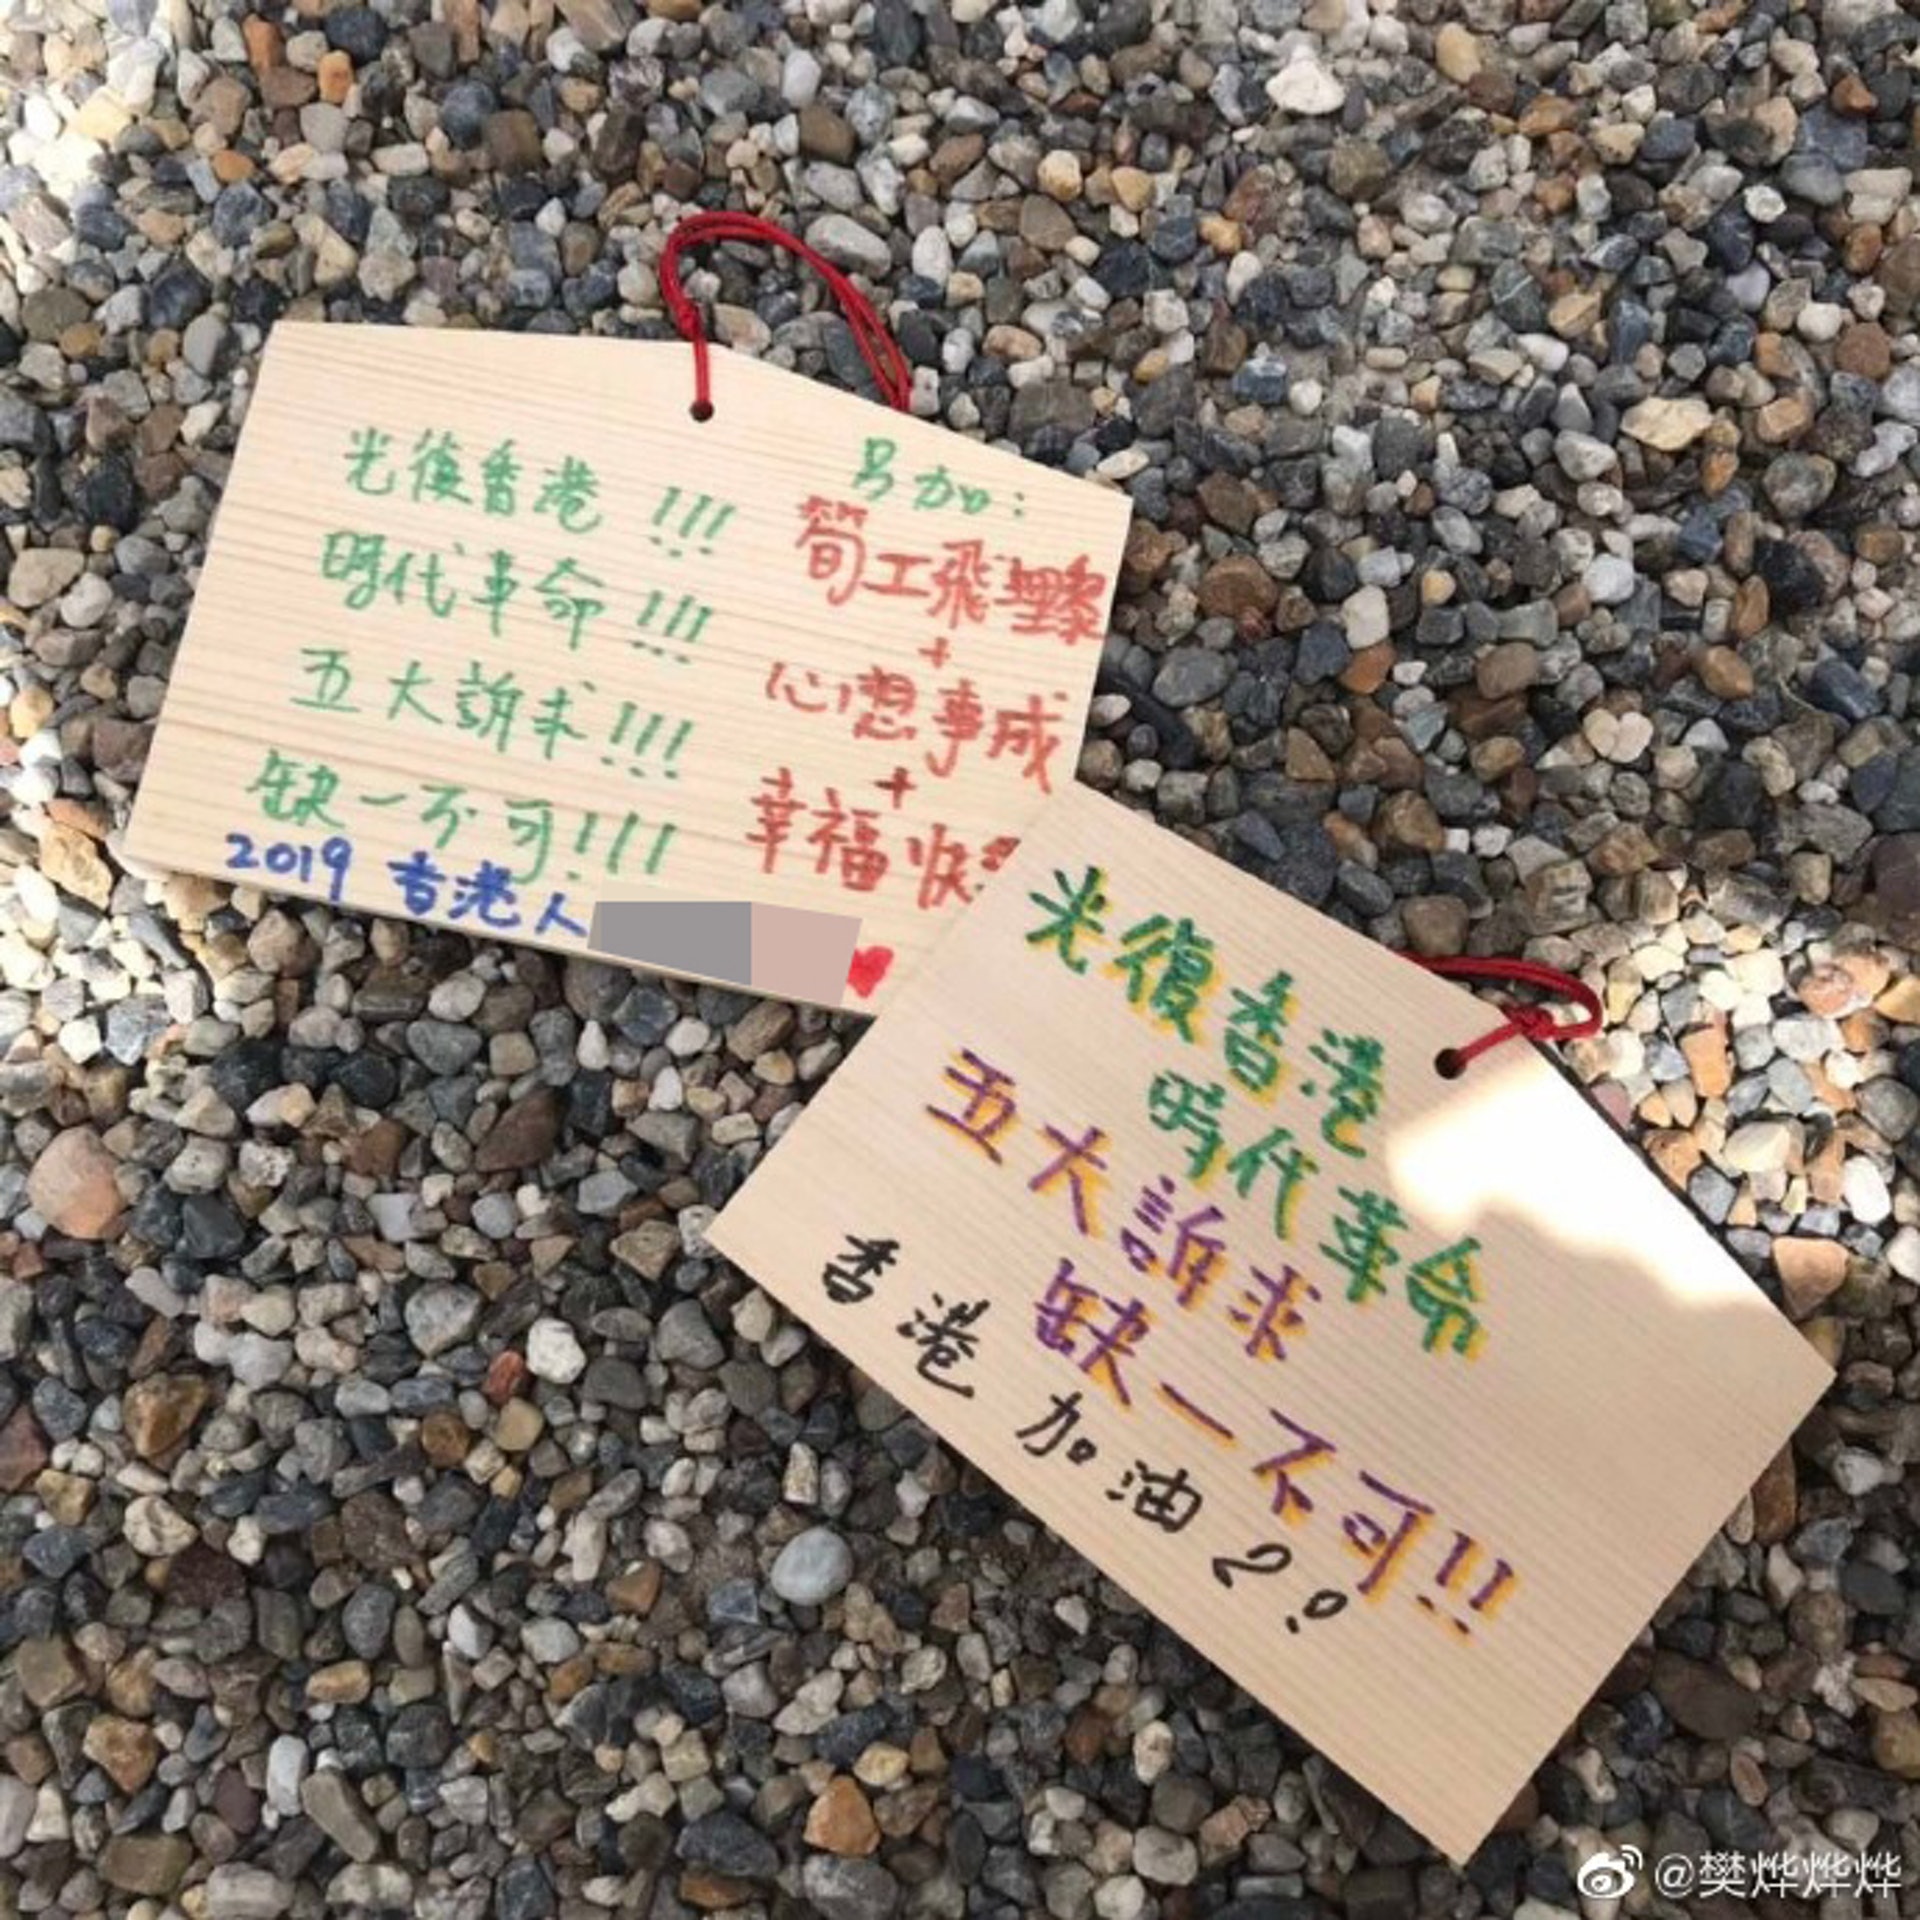 光復香港!!!
時代革命!!!
五大訴求!!!
缺一不可!!!
2019 香港人
另加:
工飛
+
心想事成
+
幸福快
光復香港
時代革命
五大訴求
缺一不可!!
香港加油
@樊烨烨烨